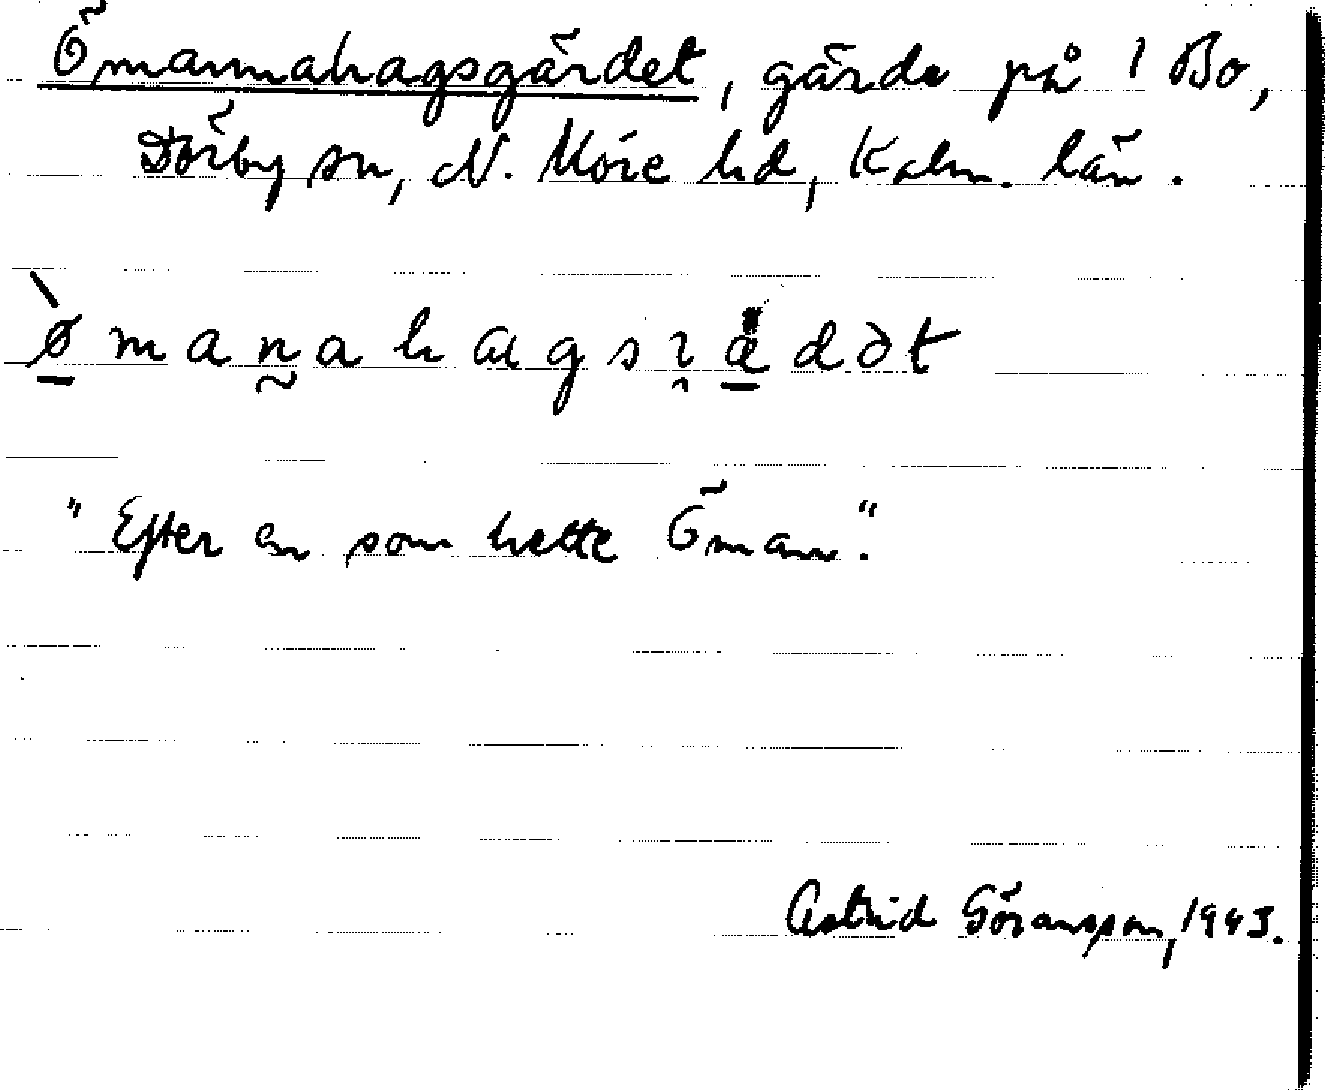 Ömannahagsgärdet, gärde på 1 Bo,
Dörby sn, N. Möre hd, Kalm. län.
ø̀manahagsräddət
"Efter en som hette Öman."
Astrid Göransson, 1943.